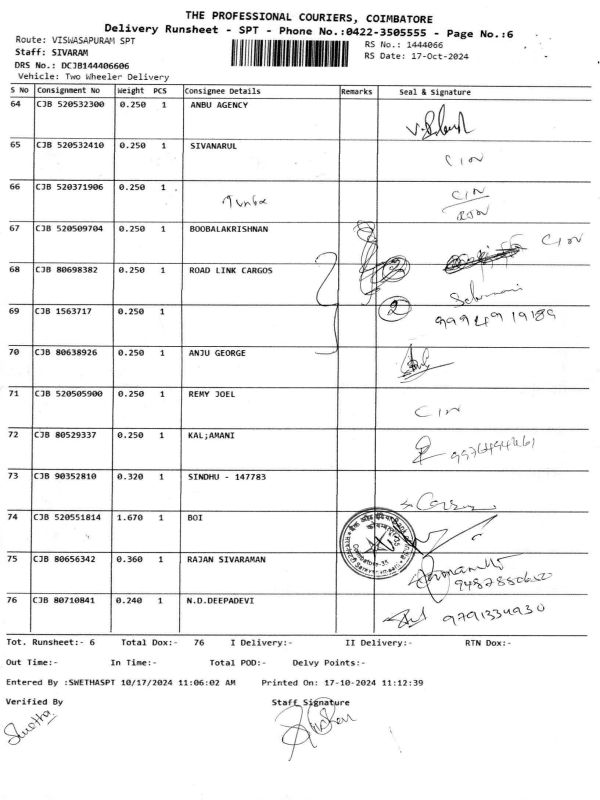 THE PROFESSIONAL COURIERS, COIMBATORE
Delivery Runsheet - SPT - Phone No.:0422-3505555 - Page No.:6
Route: VISWASAPURAM SPT
RS No.: 1444066
Staff: SIVARAM
RS Date: 17-Oct-2024
DRS No.: DCJB144406606
Vehicle: Two Wheeler Delivery
S No Consignment No Weight PCS Consignee Details Remarks Seal & Signature
64 CJB 520532300 0.250 1 ANBU AGENCY
65 CJB 520532410 0.250 1 SIVANARUL
66 CJB 520371906 0.250 1
67 CJB 520509704 0.250 1 BOOBALAKRISHNAN
68 CJB 80698382 0.250 1 ROAD LINK CARGOS 2
69 CJB 1563717 0.250 1 2 9994919189
70 CJB 80638926 0.250 1 ANJU GEORGE
71 CJB 520505900 0.250 1 REMY JOEL
72 CJB 80529337 0.250 1 KAL;AMANI
73 CJB 90352810 0.320 1 SINDHU - 147783
74 CJB 520551814 1.670 1 BOI
75 CJB 80656342 0.360 1 RAJAN SIVARAMAN
76 CJB 80710841 0.240 1 N.D.DEEPADEVI 9791334930
Tot. Runsheet:- 6 Total Dox:- 76 I Delivery:- II Delivery:- RTN Dox:-
Out Time:- In Time:- Total POD:- Delvy Points:-
Entered By :SWETHASPT 10/17/2024 11:06:02 AM Printed On: 17-10-2024 11:12:39
Verified By Staff Signature
Swetha